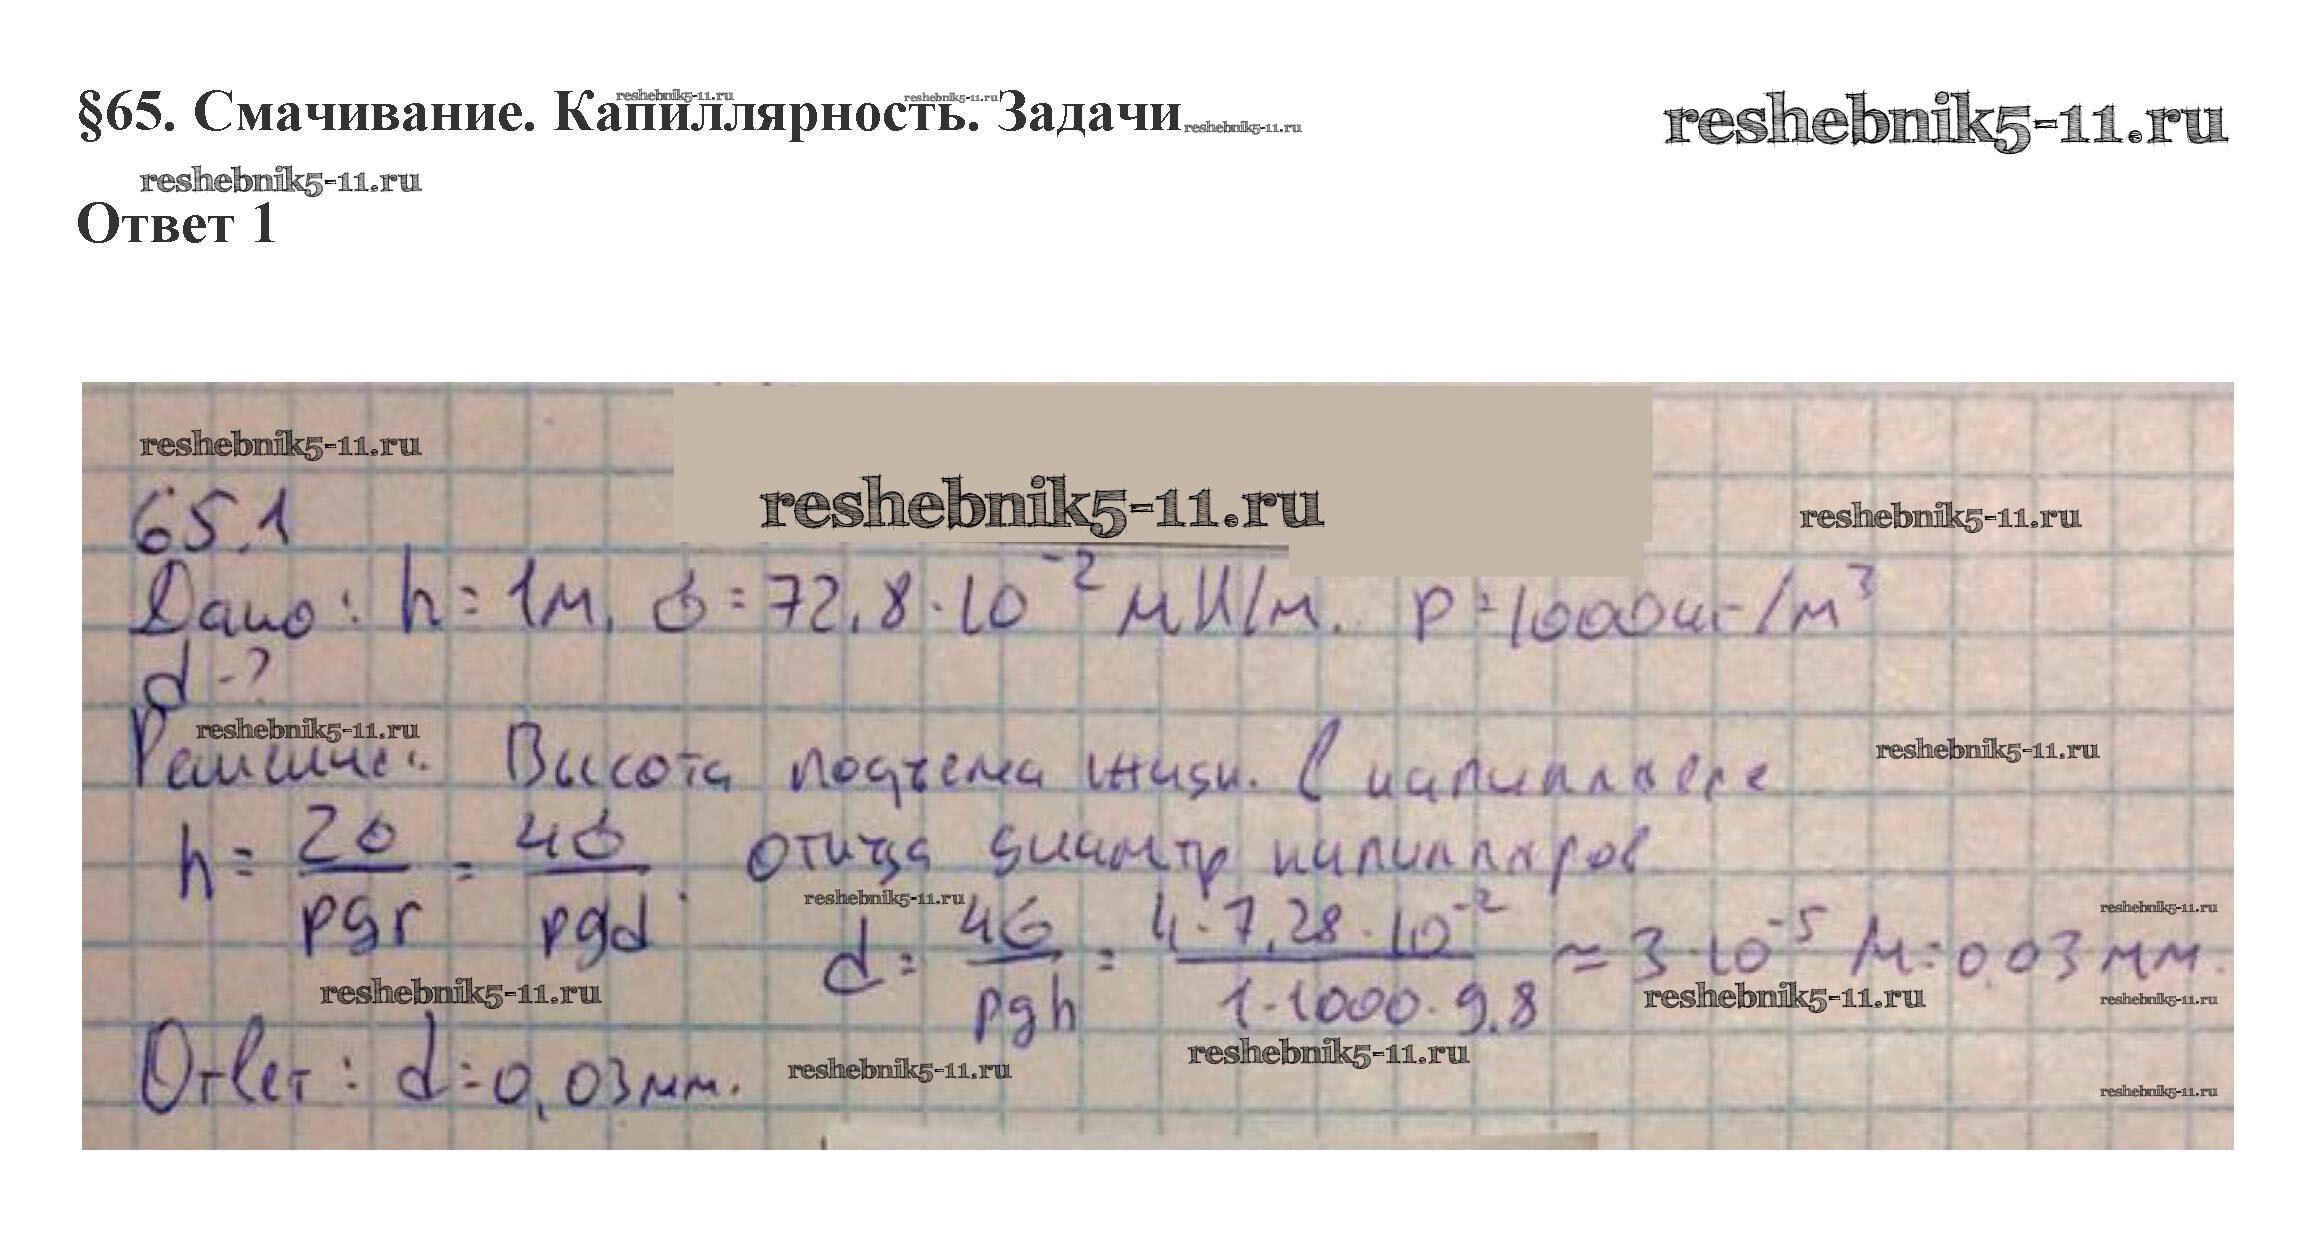 §65. Смачивание. Капиллярность. Задачи
reshebnik5-11.ru
reshebnik5-11.ru
reshebnik5-11.ru
reshebnik5-11.ru
reshebnik5-11.ru
Ответ 1
reshebnik5-11.ru
reshebnik5-11.ru
reshebnik5-11.ru
65.1
Дано: h = 1м, σ = 72,8·10⁻² мН/м. ρ = 1000 кг/м³
d - ?
reshebnik5-11.ru
reshebnik5-11.ru
Решение: Высота подъема жидк. в капилляре
h = 2σ/ρgr = 4σ/ρgd. Откуда диаметр капилляров
reshebnik5-11.ru
reshebnik5-11.ru
d = 4σ/ρgh = 4·7,28·10⁻²/1·1000·9,8 ≈ 3·10⁻⁵ м = 0,03 мм.
reshebnik5-11.ru
reshebnik5-11.ru
reshebnik5-11.ru
reshebnik5-11.ru
Ответ: d = 0,03 мм.
reshebnik5-11.ru
reshebnik5-11.ru